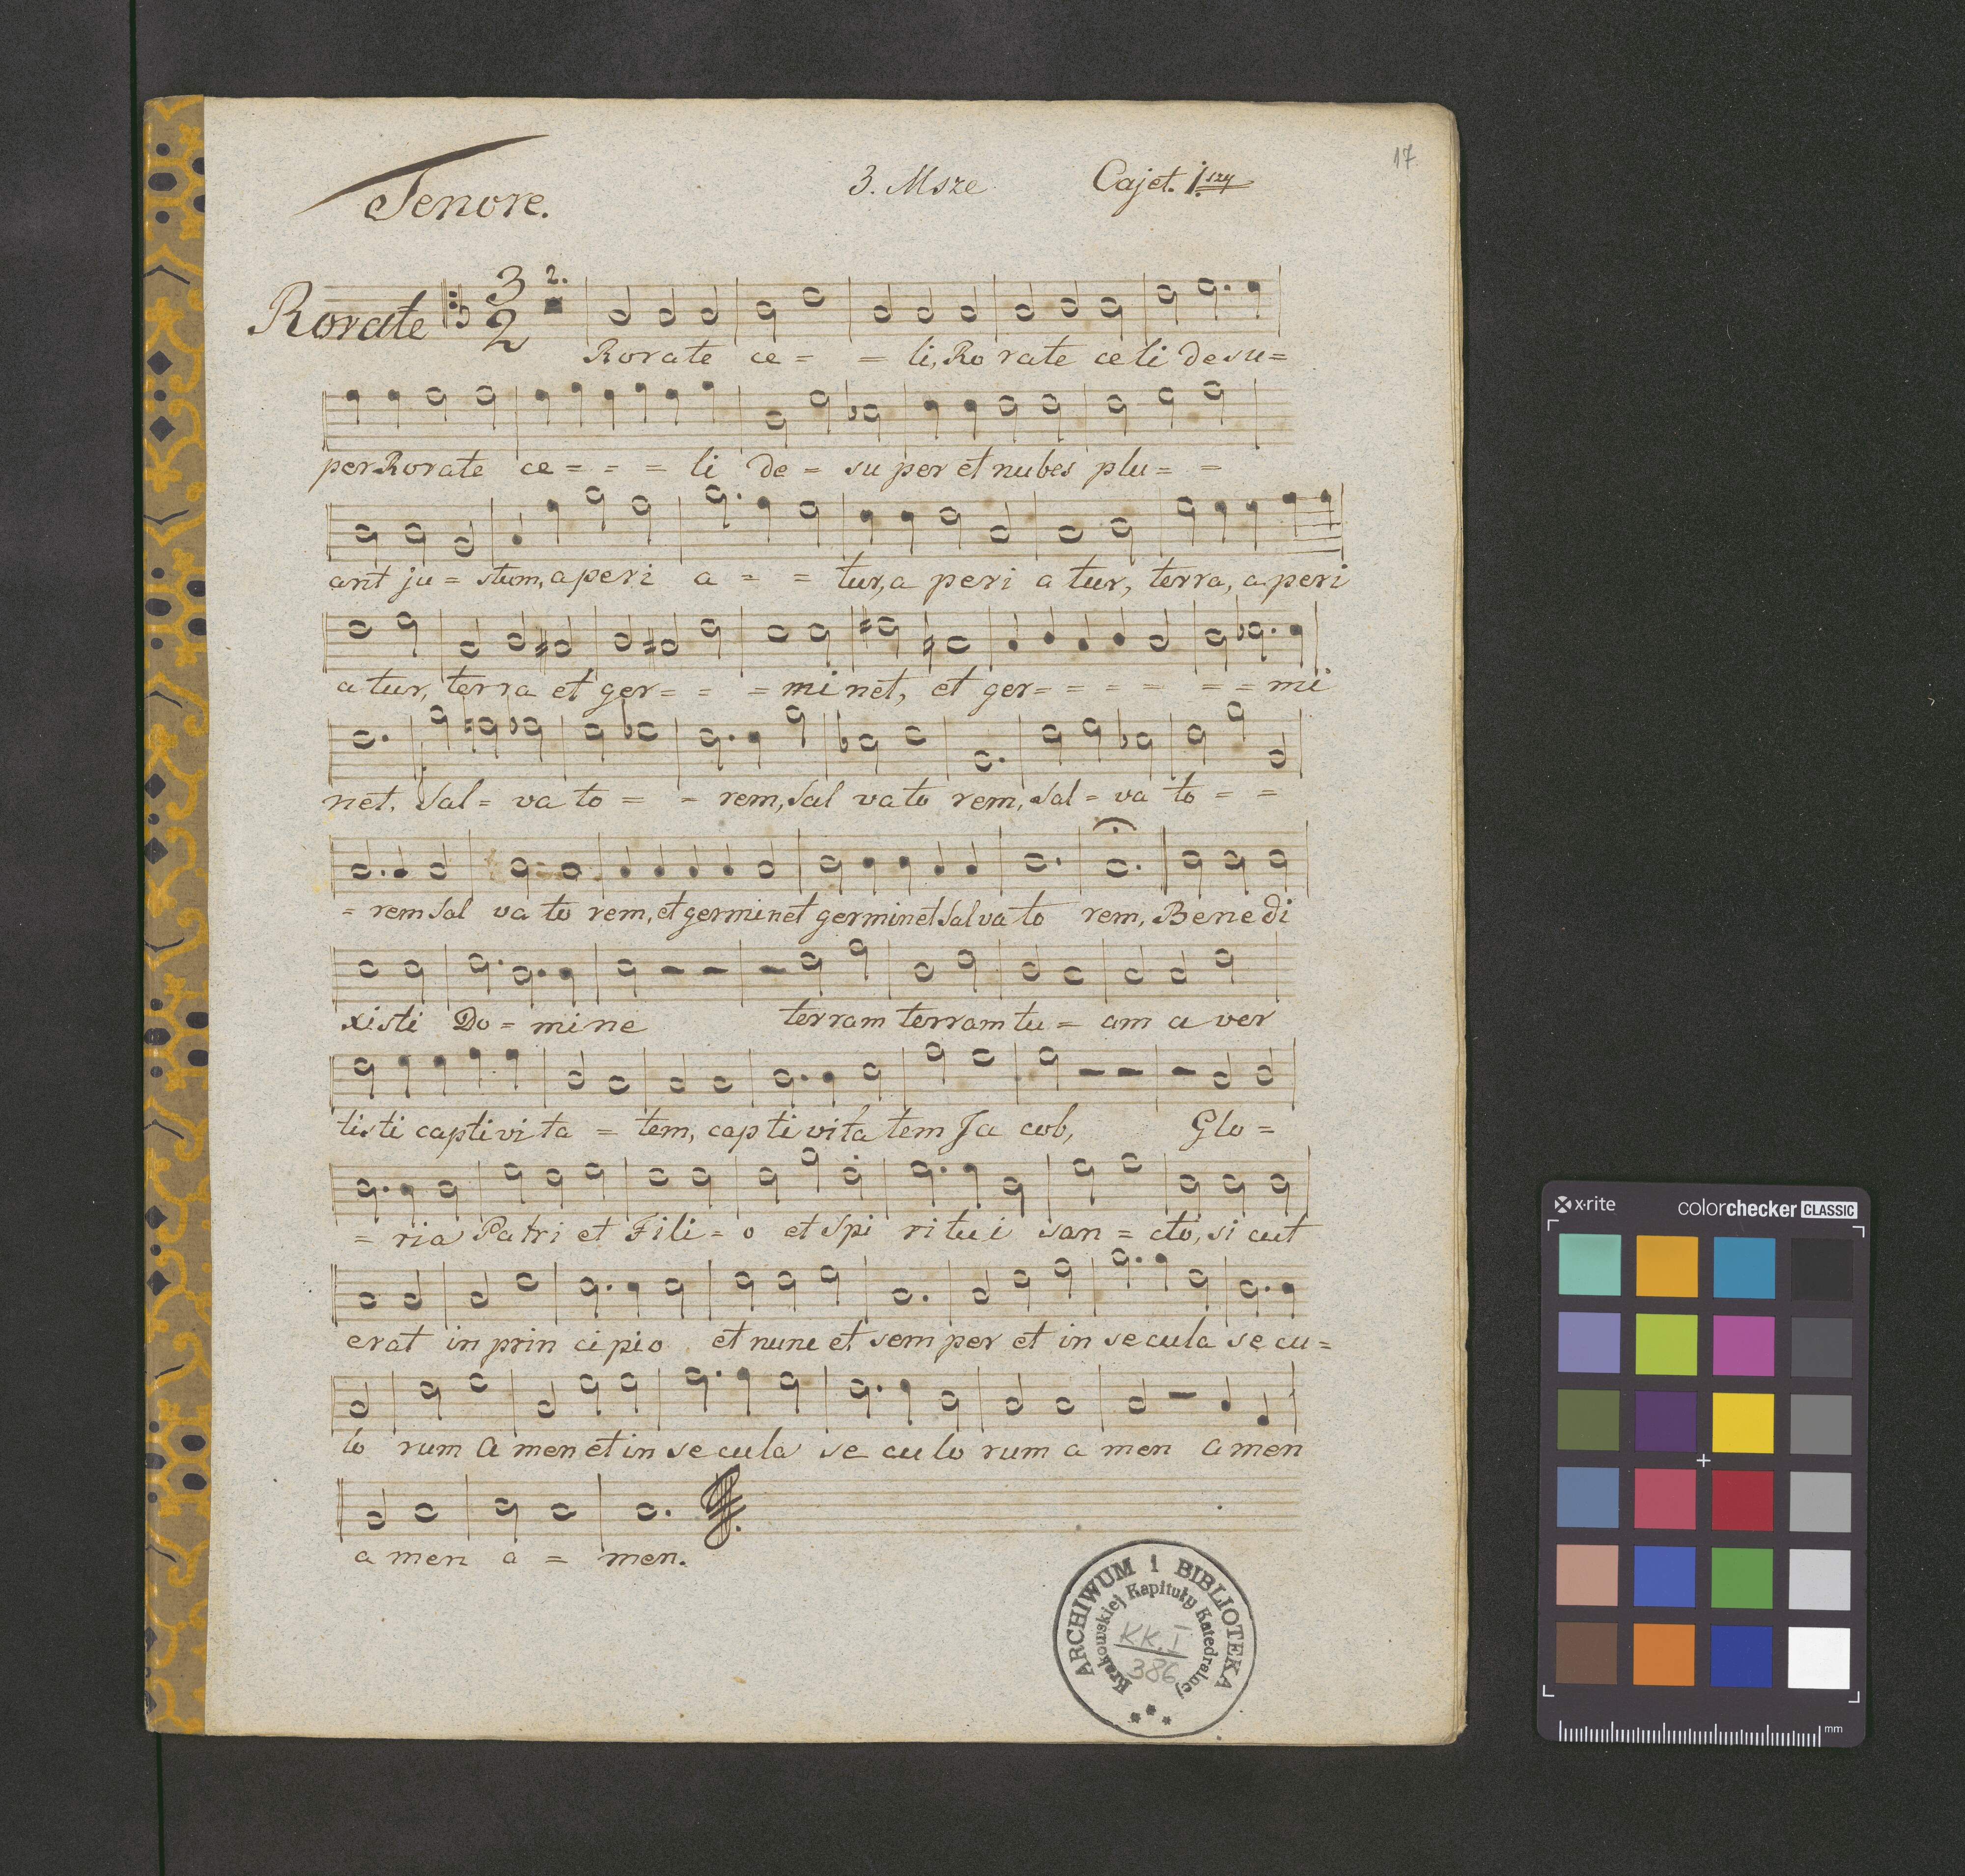 17.
Tenore. 3. Msze Cajet. 1szy
Rorate 3 2 2.
Rorate ce = = li, Ro rate celi desu=
per Rorate ce = = = li de = su per et nubes plu= =
ant ju = stum, aperi a = = tur, a peri a tur, terra, a peri
a tur, terra et ger= = = mi net, et ger= = = = = = mi
net. Sal = va to = = rem, Sal va to rem, Sal = va to = =
= rem Sal va to rem, et germinet germinet Salva to rem, Bene di
xisti Do = mine terram terram tu = am a ver
tisti captivi ta = tem, capti vita tem Ja cob, Glo =
= ria Patri et Fili = o et Spi ritui san = cto, si cut
erat in prin cipio et nunc et semper et in secula se cu=
lo rum A men et in se cula se culo rum a men Amen
a men a = men.
ARCHIWUM i BIBLIOTEKA
Krakowskiej Kapituły Katedralnej
KK. I
386
x-rite colorchecker CLASSIC
mm